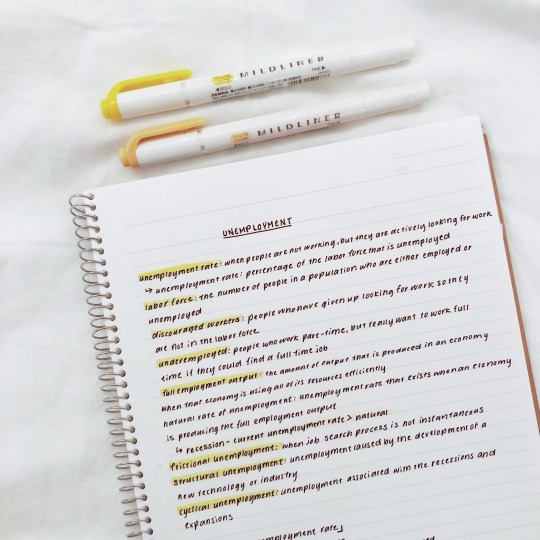 MILDLINER
MILDLINER
UNEMPLOYMENT
unemployment rate: when people are not working, but they are actively looking for work
↳ unemployment rate: percentage of the labor force that is unemployed
labor force: the number of people in a population who are either employed or
unemployed
discouraged workers: people who have given up looking for work so they
are not in the labor force
underemployed: people who work part-time, but really want to work full
time if they could find a full time job
full employment output: the amount of output that is produced in an economy
when that economy is using all of its resources efficiently
natural rate of unemployment: unemployment rate that exists when an economy
is producing the full employment output
↳ recession- current unemployment rate > natural
frictional unemployment: when job search process is not instantaneous
structural unemployment: unemployment caused by the development of a
new technology or industry
cyclical unemployment: unemployment associated with the recessions and
expansions